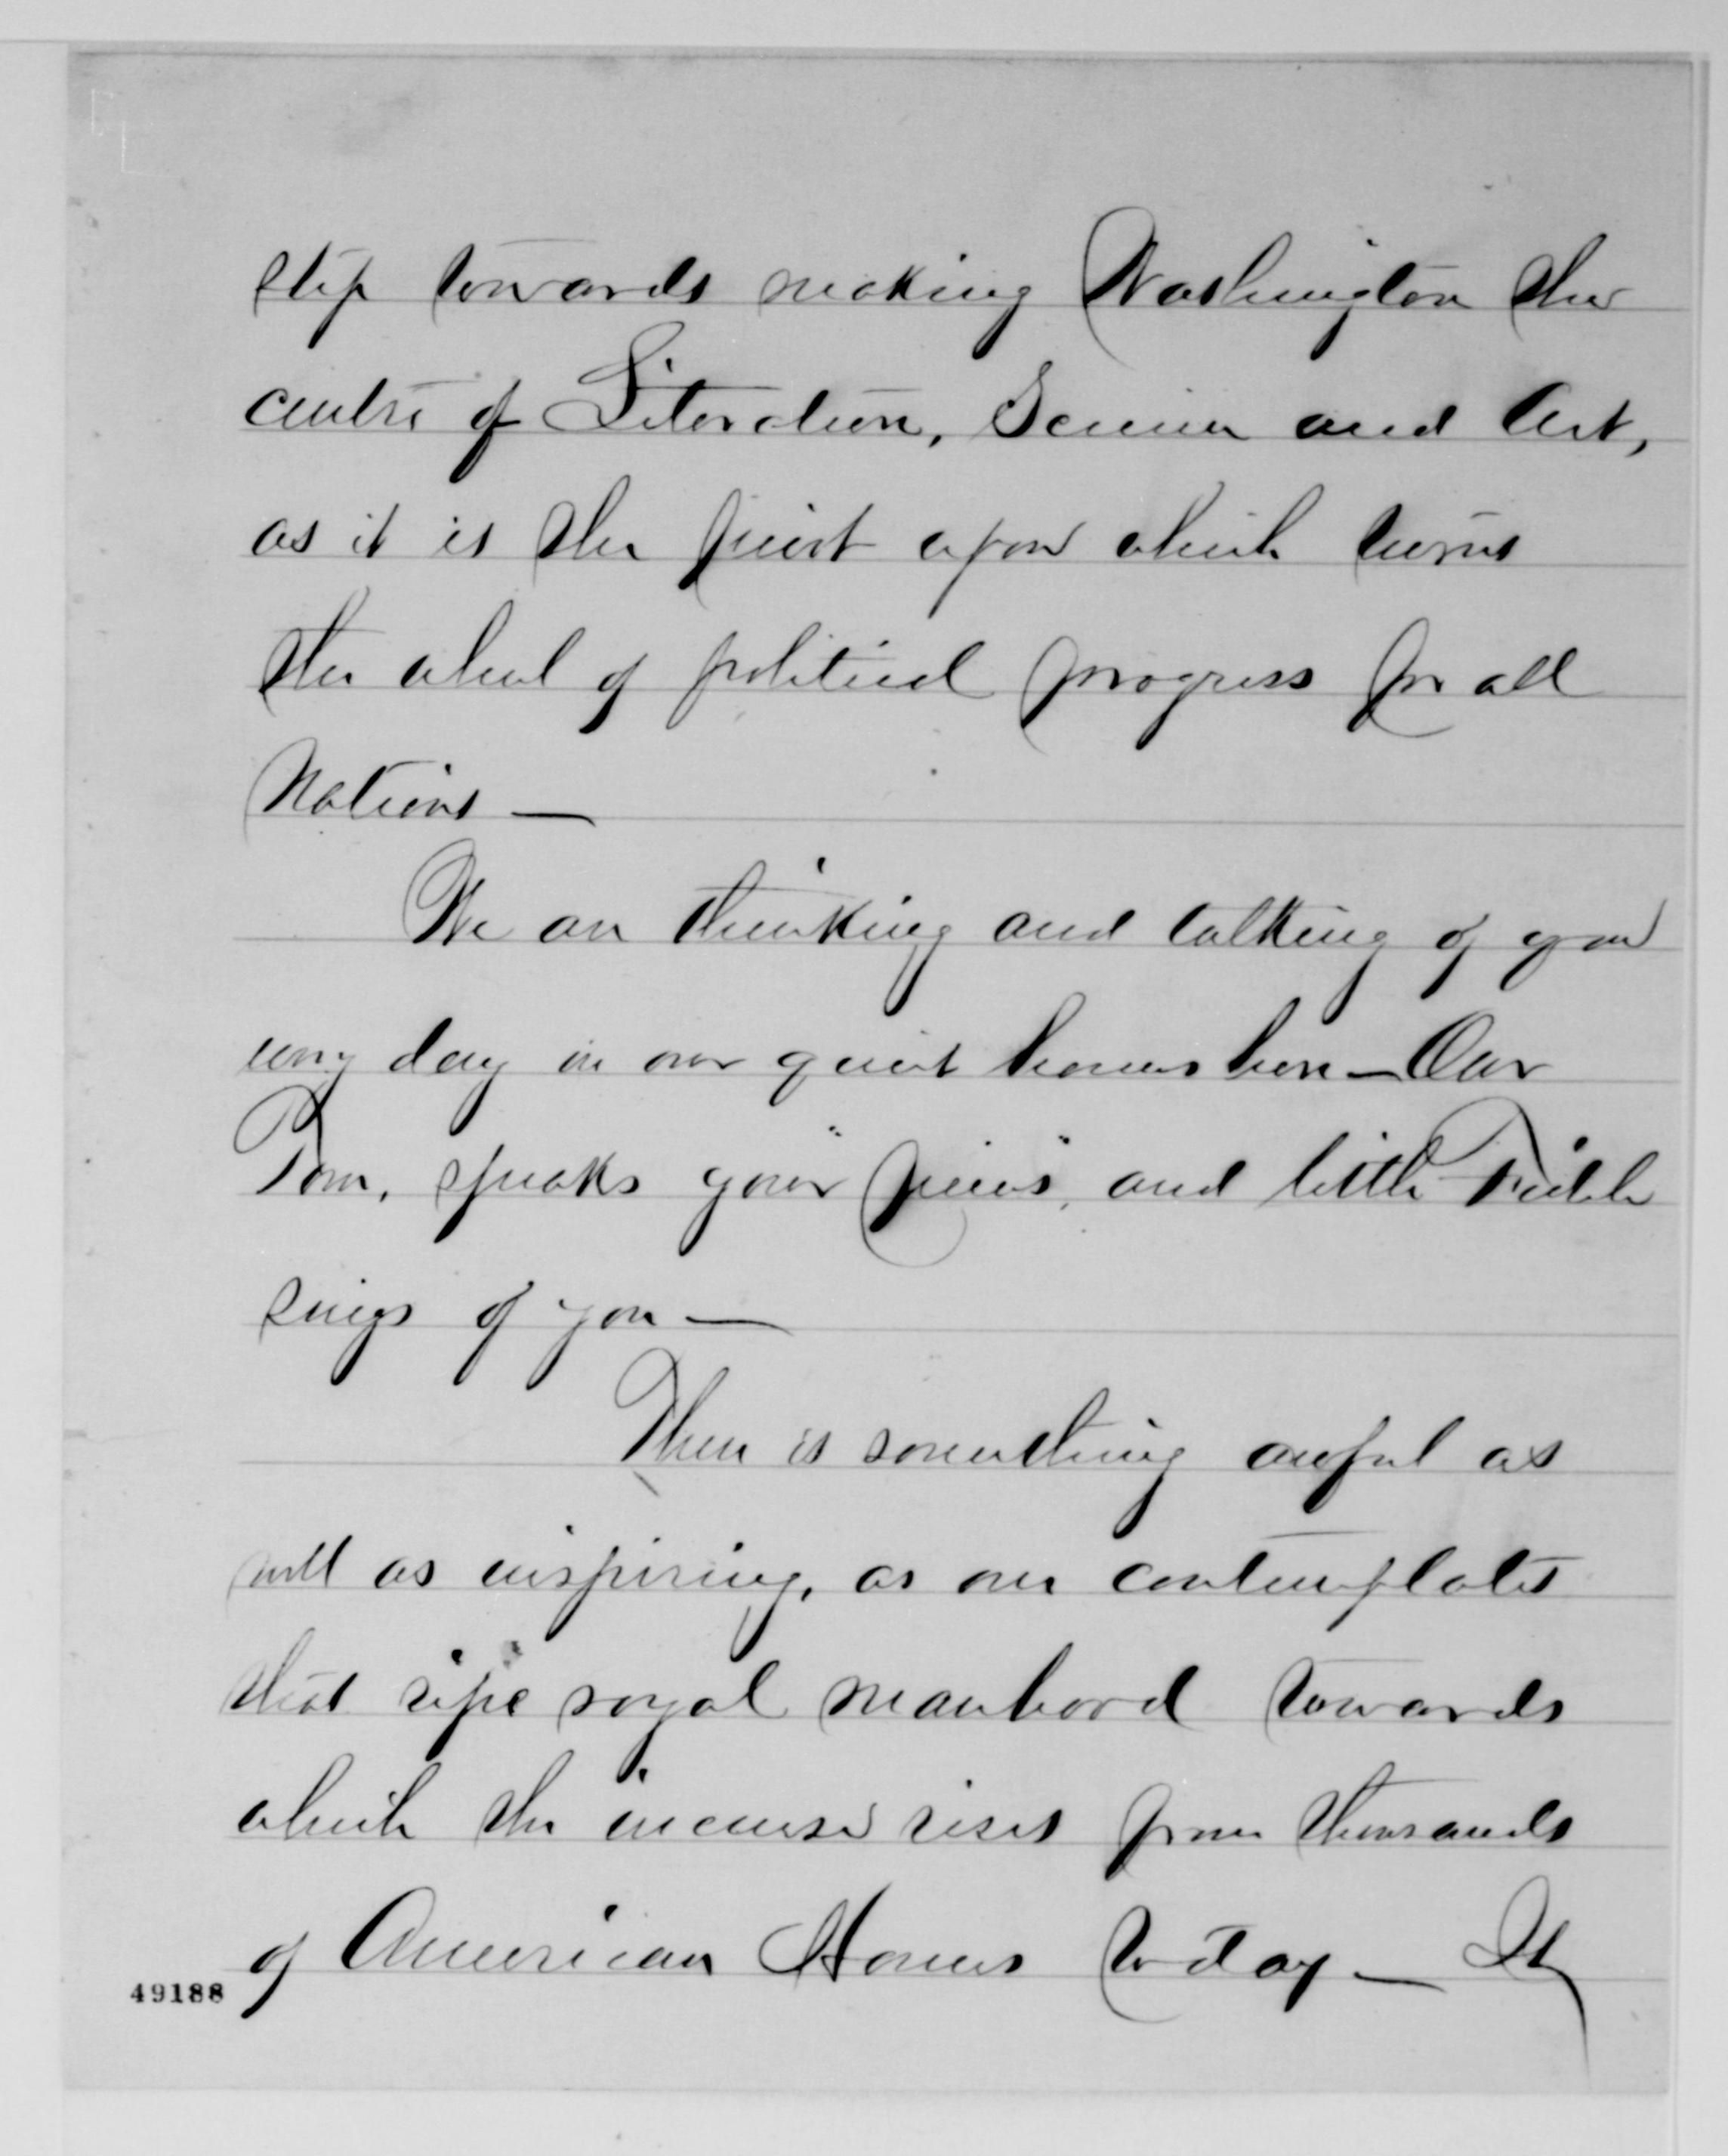 step towards making Washington the
centre of Literature, Science and Art,
as it is the point upon which turns
the wheel of political progress for all
Nations —
We are thinking and talking of you
every day in our quiet home here — Our
Tom, speaks your "pieces", and little
sings of you —
There is something awful as
well as inspiring, as one contemplates
that ripe royal manhood towards
which the incense rises from thousands
of American Homes to day — It
49188